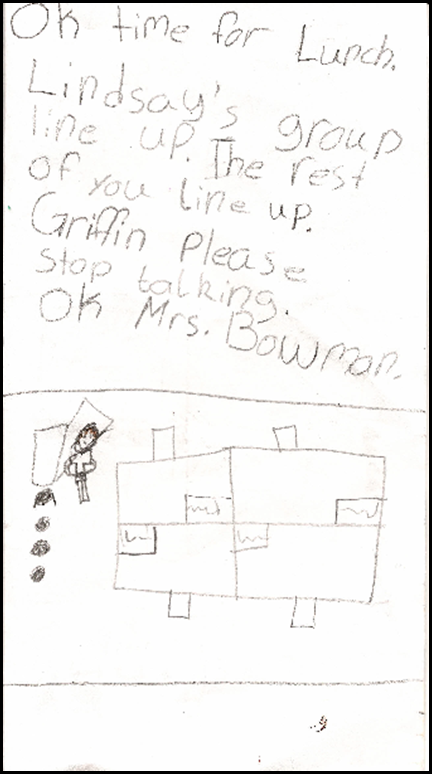 Ok time for Lunch.
Lindsay's group
line up. The rest
of you line up.
Griffin please
stop talking.
Ok Mrs. Bowman.